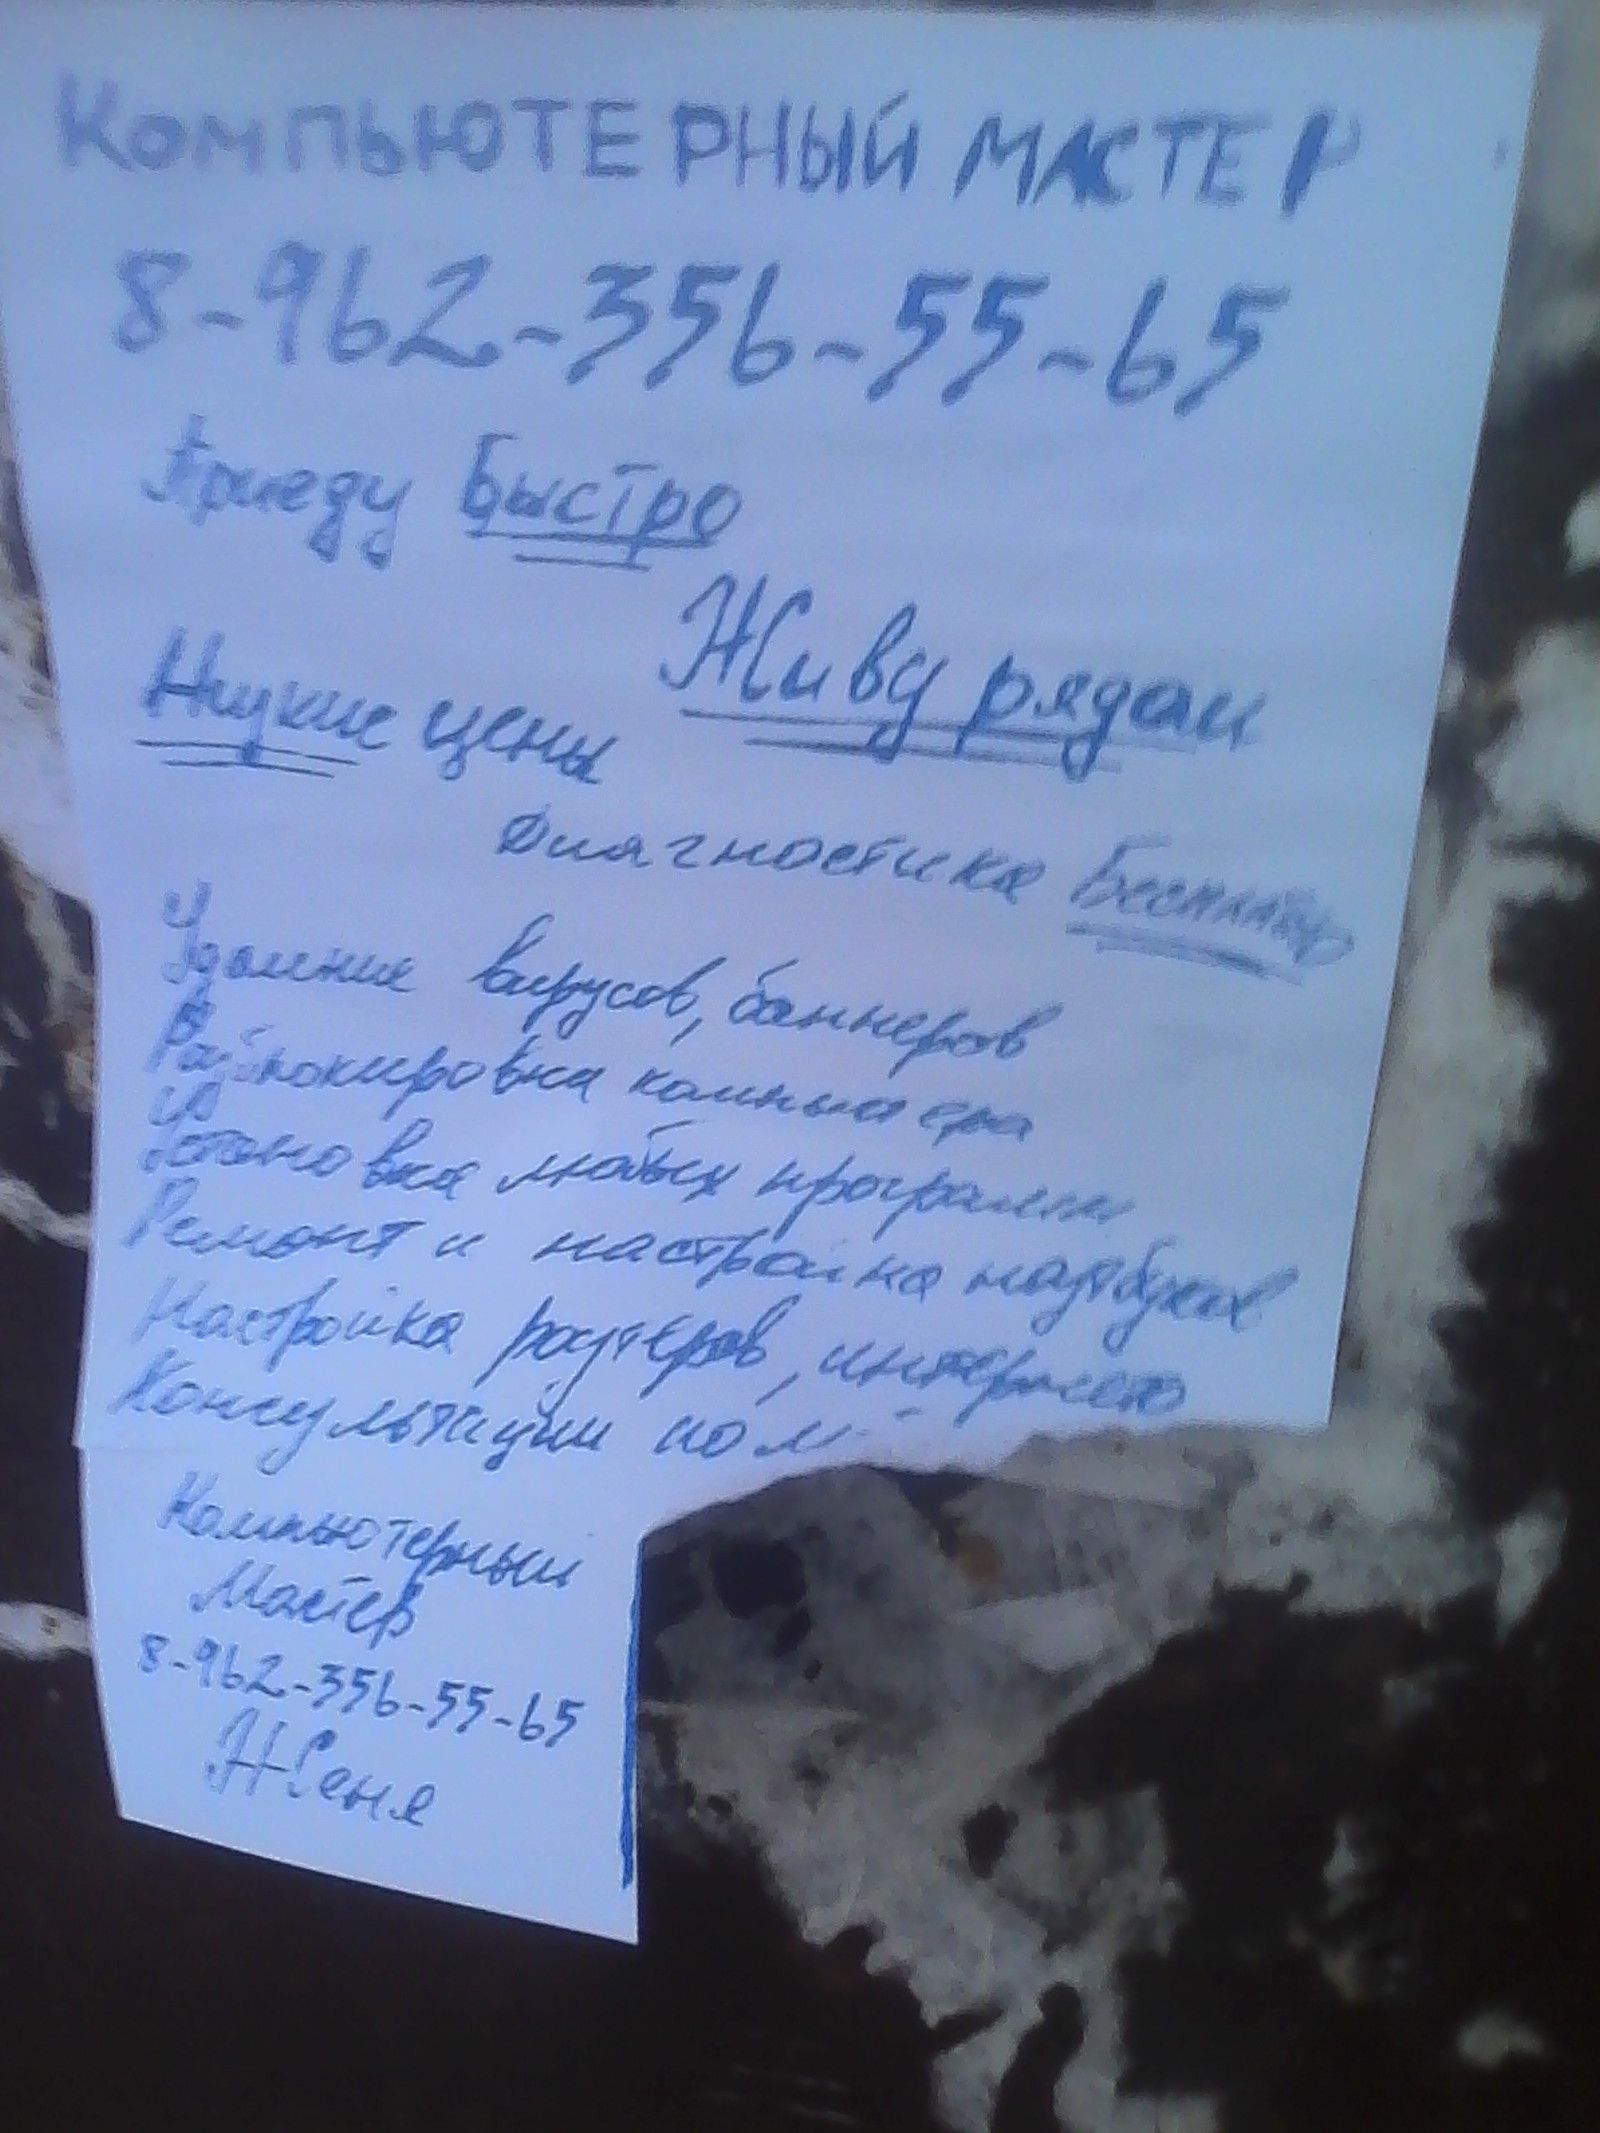 Компьютерный мастер
8-962-356-55-65
Приеду Быстро
Живу рядом
Низкие цены
Диагностика Бесплатно
Удаление вирусов, баннеров
Разблокировка компьютера
Установка любых программ
Ремонт и настройка ноутбуков
Настройка роутеров, интернета
Консультации по
Компьютерный
Мастер
8-962-356-55-65
Женя